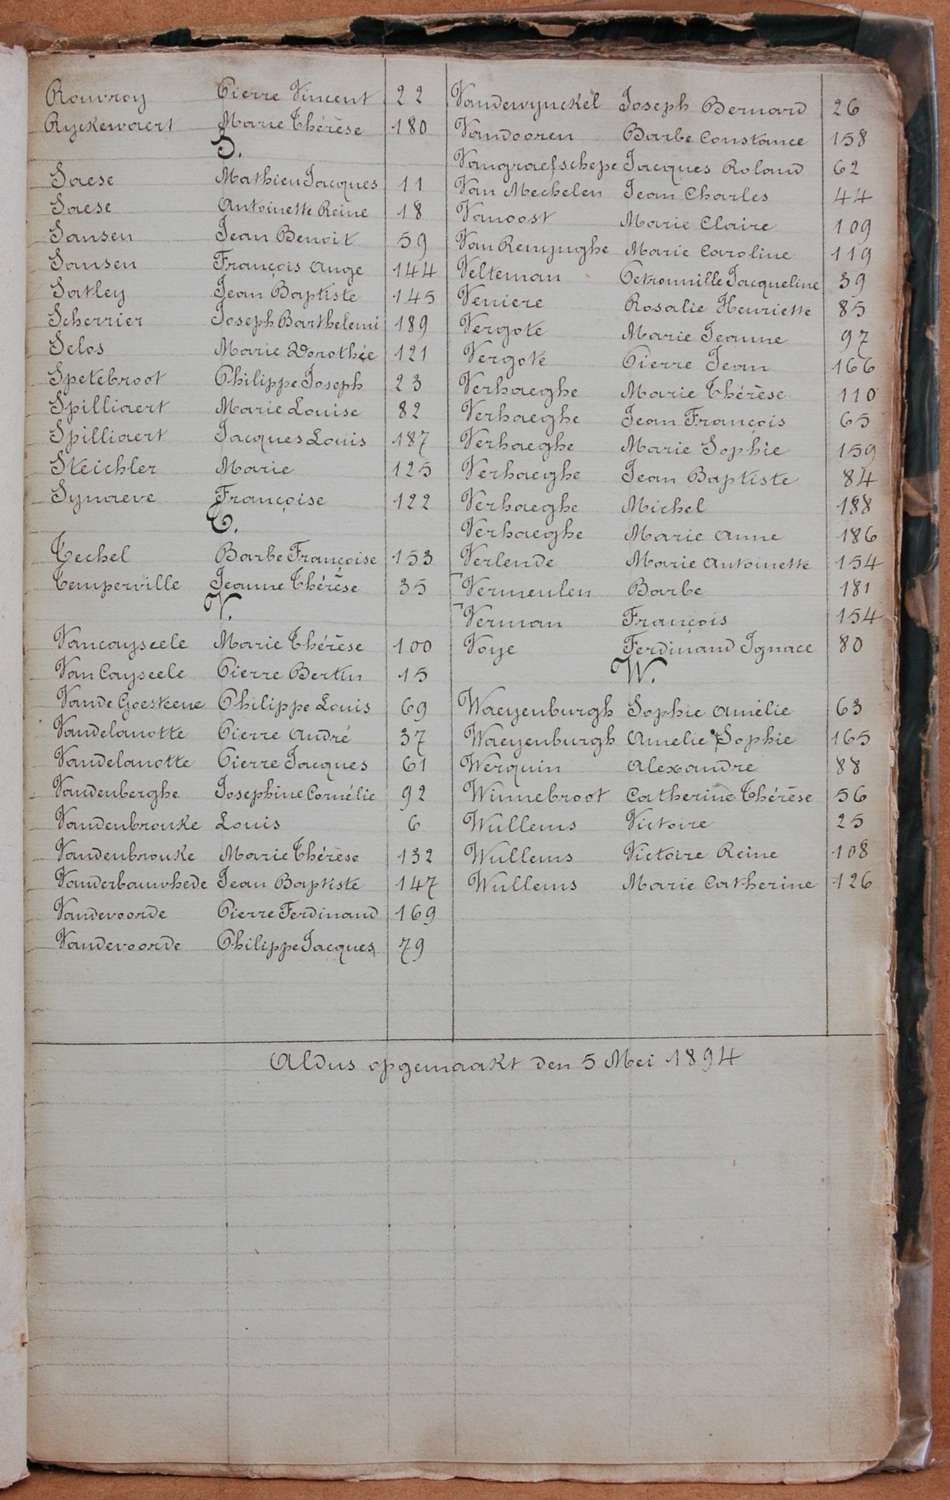 Rouvroy Pierre Vincent 22
Ryckewaert Marie Thérèse 180
S.
Saese Mathieu Jacques 11
Saese Antoinette Reine 18
Sansen Jean Benoit 59
Sansen François Ange 144
Satley Jean Baptiste 145
Scherrier Joseph Barthelemi 189
Selos Marie Dorothée 121
Spetebroot Philippe Joseph 23
Spilliaert Marie Louise 82
Spilliaert Jacques Louis 187
Steichler Marie 125
Synaeve Françoise 122
T.
Techel Barbe Françoise 153
Temperville Jeanne Thérèse 35
V.
Vancayseele Marie Thérèse 100
Van Cayseele Pierre Bertin 15
Vande Goesteene Philippe Louis 69
Vandelanotte Pierre André 37
Vandelanotte Pierre Jacques 61
Vandenberghe Josephine Cornélie 92
Vandenbrouke Louis 6
Vandenbrouke Marie Thérèse 132
Vanderbauwhede Jean Baptiste 147
Vandevoorde Pierre Ferdinand 169
Vandevoorde Philippe Jacques 79
Vandewynckel Joseph Bernard 26
Vandooren Barbe Constance 158
Vangraefschepe Jacques Roland 62
Van Mechelen Jean Charles 44
Vanoost Marie Claire 109
Van Renynghe Marie Caroline 119
Velteman Petronnille Jacqueline 39
Veniere Rosalie Henriette 85
Vergote Marie Jeanne 97
Vergote Pierre Jean 166
Verhaeghe Marie Thérèse 110
Verhaeghe Jean François 65
Verhaeghe Marie Sophie 159
Verhaeghe Jean Baptiste 84
Verhaeghe Michel 188
Verhaeghe Marie Anne 186
Verlende Marie Antoinette 154
Vermeulen Barbe 181
Verman François 154
Voye Ferdinand Ignace 80
W.
Waeyenburgh Sophie Amélie 63
Waeyenburgh Amelie Sophie 165
Werquin Alexandre 88
Winnebroot Catherine Thérèse 56
Wullems Victoire 25
Wullems Victoire Reine 108
Wullems Marie Catherine 126
Aldus opgemaakt den 5 Mei 1894